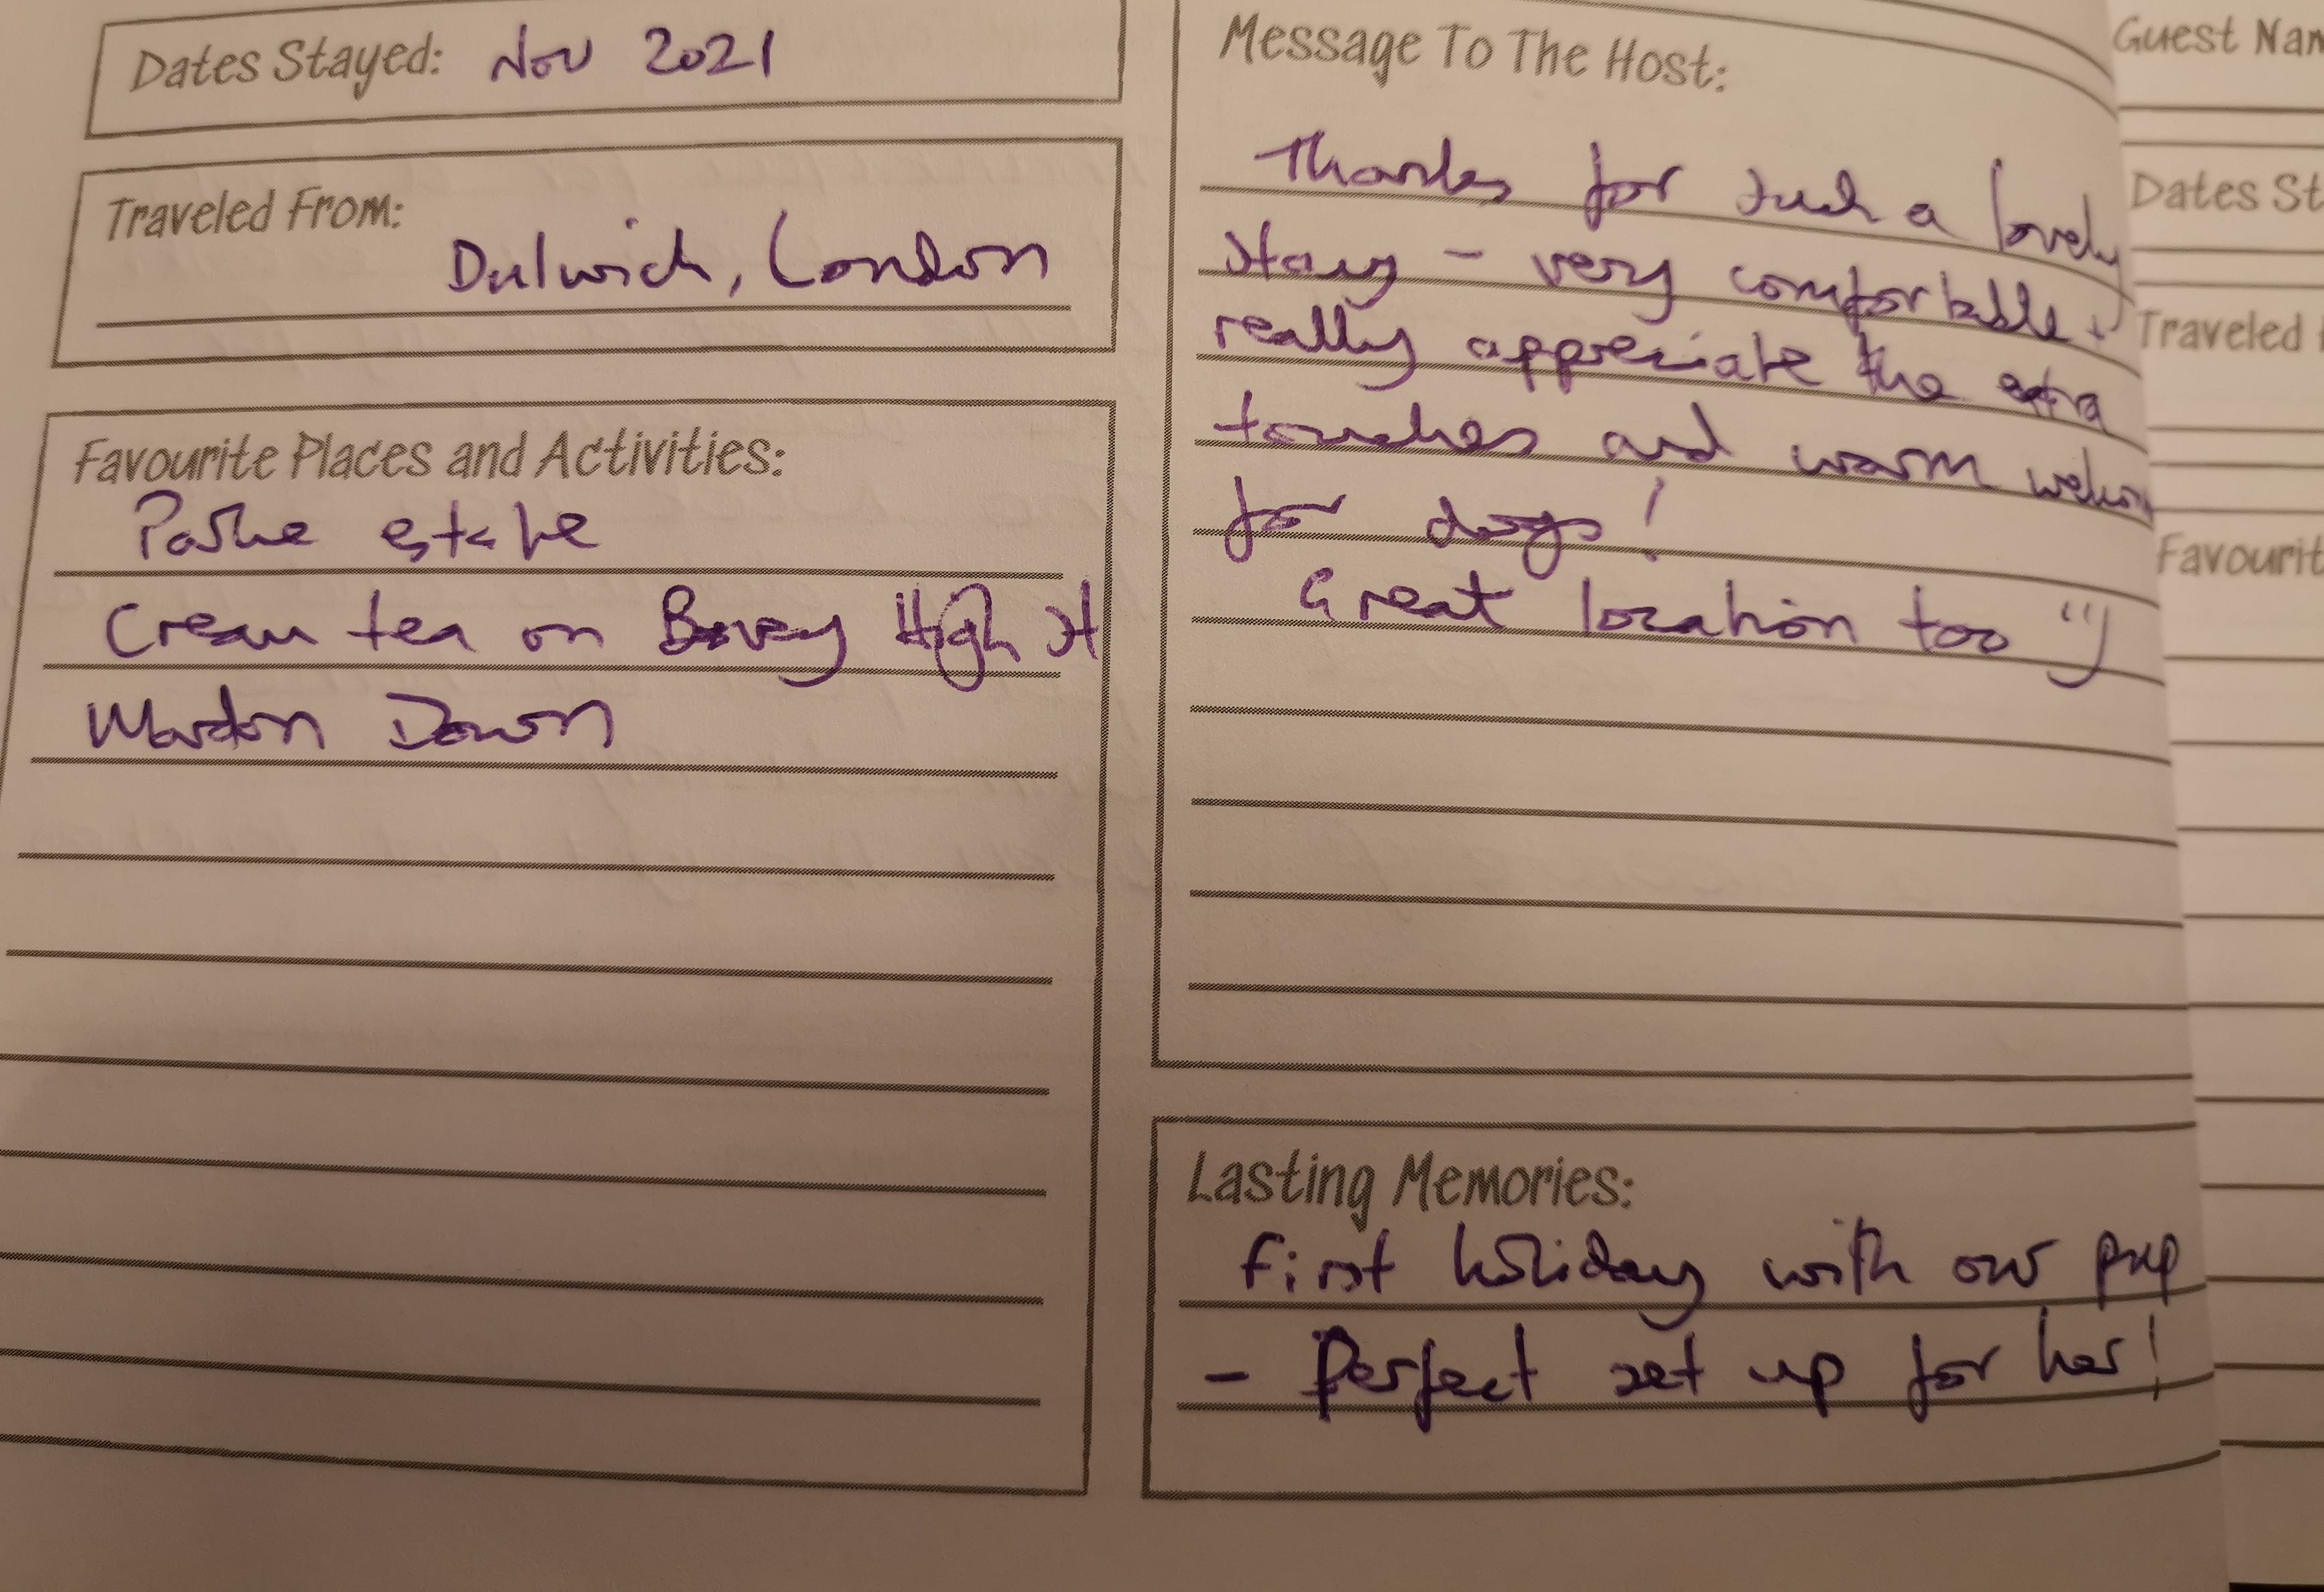 Dates Stayed: Nov 2021
Traveled From:
Dulwich, London
Favourite Places and Activities:
Parke estate
Cream tea on Bovey High St
Mardon Down
Message To The Host:
Thanks for such a lovely
stay - very comfortable +
really appreciate the extra
touches and warm welcome
for dogs!
Great location too :)
Lasting Memories:
First holiday with our pup
- Perfect set up for her!
Guest Nam
Dates St
Traveled
Favourit